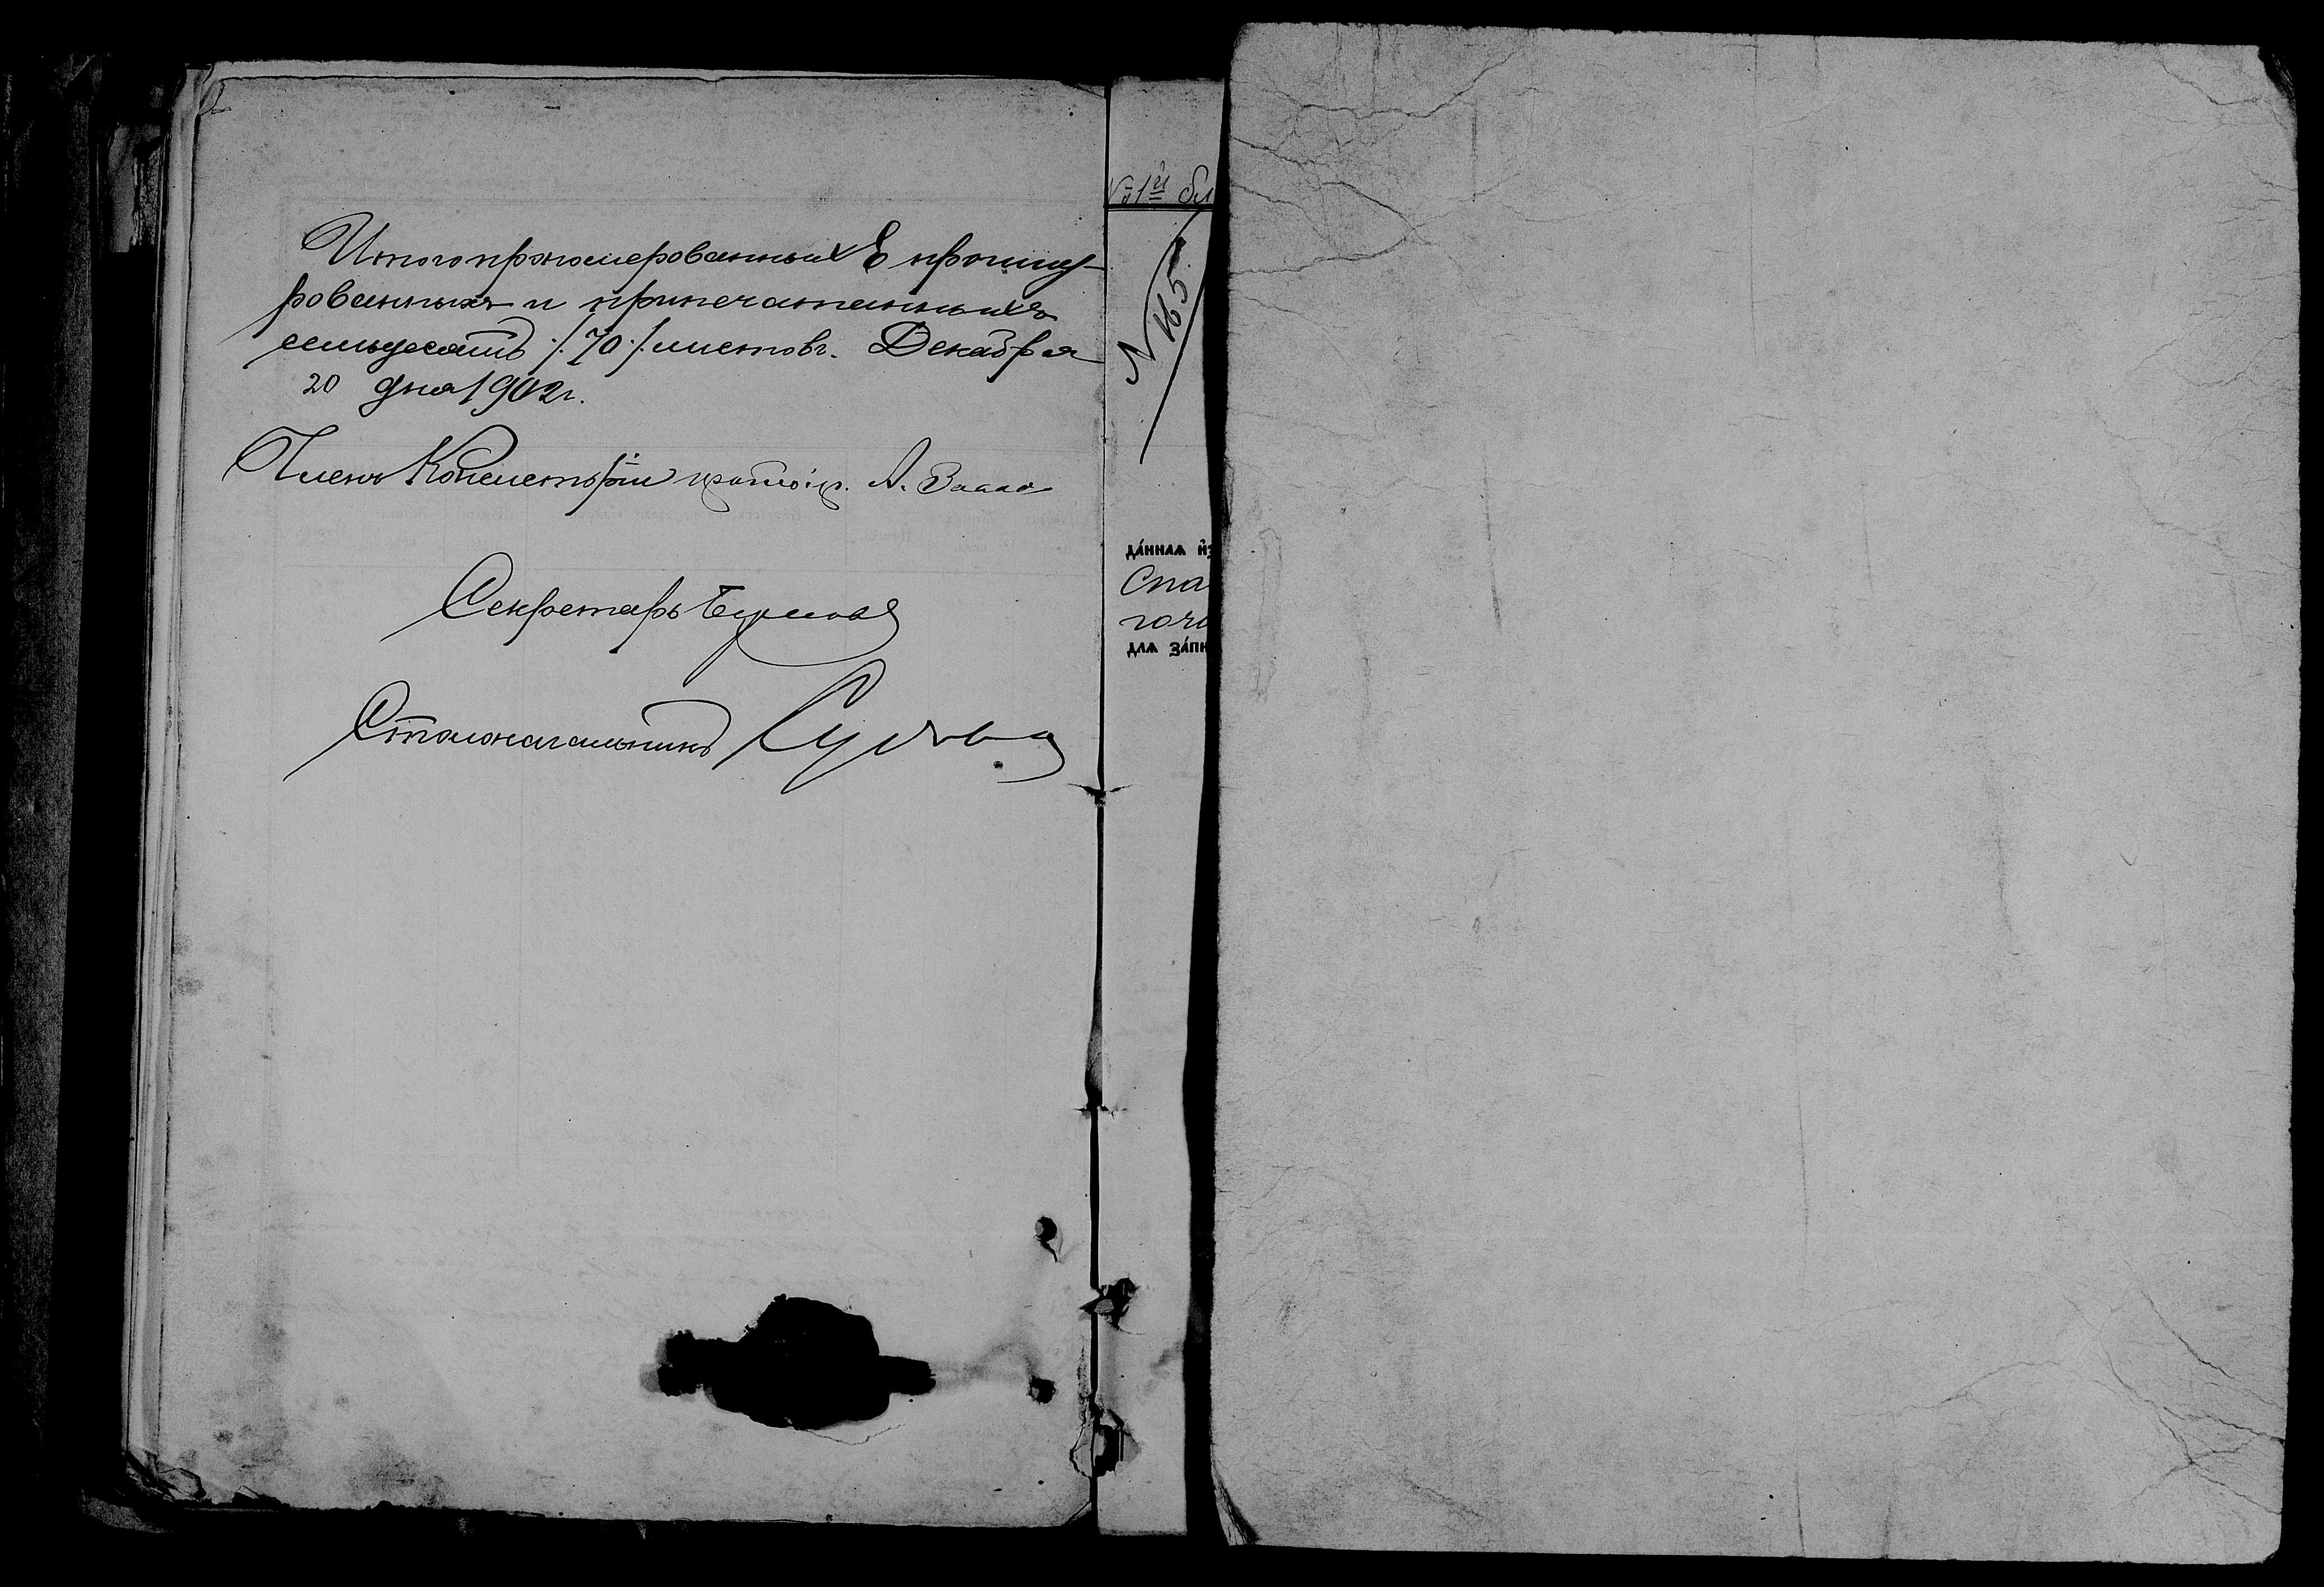 Итого пронумерованныхъ прошну-
рованныхъ и припечатанныхъ
семьдесятъ /:70:/ листовъ. Декабря
20 дня 1902 г.
Членъ Консисторіи А.
Секретарь
Столоначальникъ
№ 1й бл
№ 165
да́нная и҆з
Спа
для за́пи